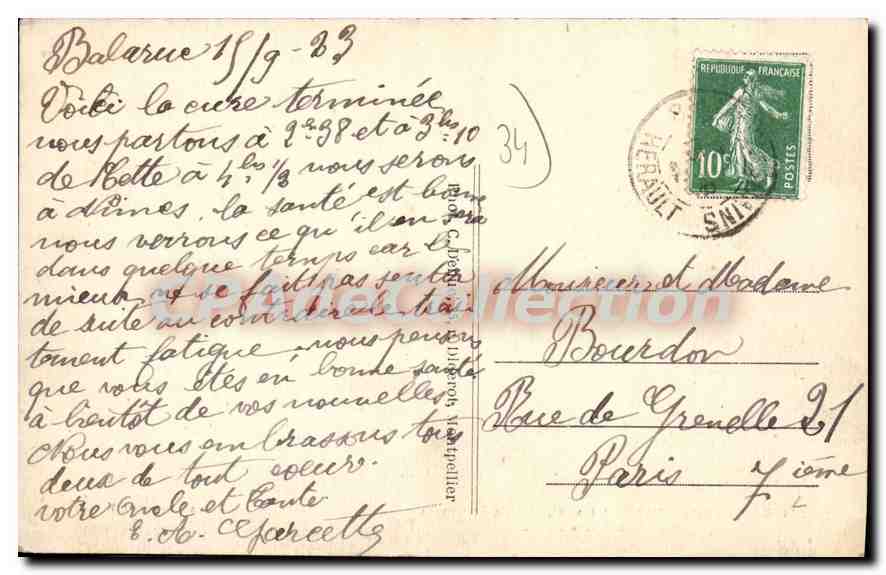 Balaruc 15/9-23
Voici la cure terminée
nous partons à 2h38 et à 3hrs10
de Cette à 4hrs 1/2 nous serons
à Nimes. la santé est bonne
nous verrons ce qu'il en sera
dans quelque temps car le
mieux ne se fait pas sentir
de suite au contraire le trai-
tement fatigue. nous pensons
que vous êtes en bonne santé
à bientôt de vos nouvelles
Nous vous embrassons tous
deux de tout coeur.
votre Oncle et Tante
E. A. Garcette
34
Phot. C. Diderot, Montpellier
REPUBLIQUE FRANÇAISE
10c
POSTES
HERAULT
AINS
Monsieur et Madame
Bourdon
Rue de Grenelle 21
Paris 7ième
CPA Collection